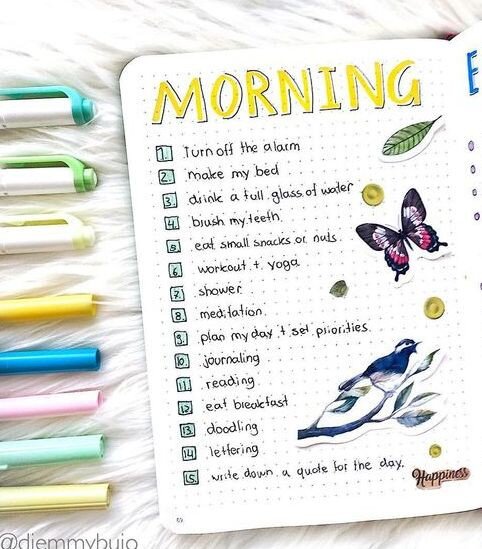 MORNING
1. Turn off the alarm
2. make my bed
3. drink a full glass of water
4. brush my teeth.
5. eat small snacks or nuts.
6. workout + yoga
7. shower
8. meditation.
9. plan my day + set priorities.
10. journaling
11. reading
12. eat breakfast
13. doodling
14. lettering.
15. write down a quote for the day.
Happiness
E
@diemmybujo